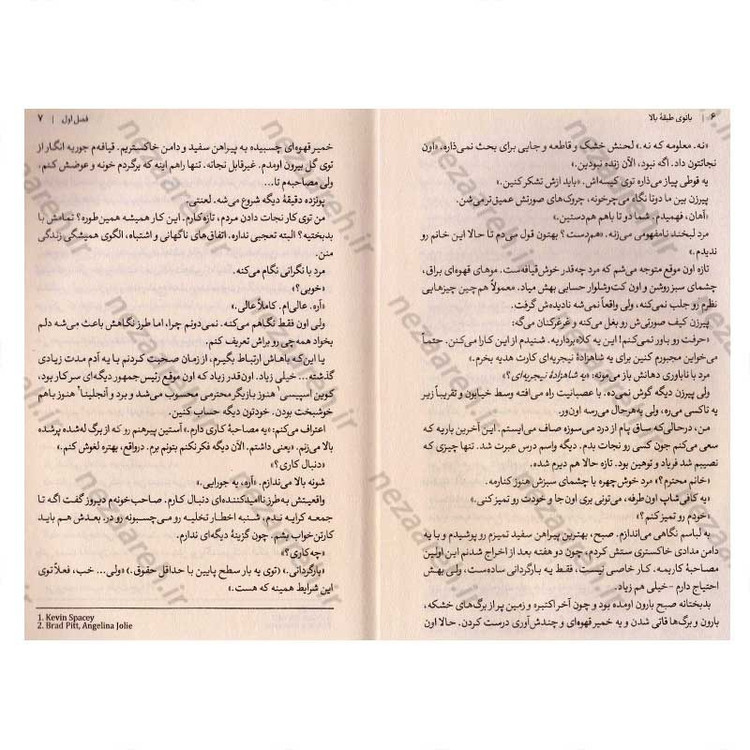 ۶ | بانوی طبقهٔ بالا
«نه. معلومه که نه.» لحنش خشک و قاطعه و جایی برای بحث نمی‌ذاره، «اون
نجاتتون داد. اگه نبود، الآن زنده نبودین.»
یه قوطی پیاز می‌ذاره توی کیسه‌اش. «باید ازش تشکر کنین.»
پیرزن بین ما دوتا نگاه می‌چرخونه، چروک‌های صورتش عمیق‌تر می‌شن.
«آهان، فهمیدم. شما دو تا باهم هم‌دستین.»
مرد لبخند نامفهومی می‌زنه. «هم‌دست؟ بهتون قول می‌دم تا حالا این خانم رو
ندیدم.»
تازه اون موقع متوجه می‌شم که مرد چه‌قدر خوش‌قیافه‌ست. موهای قهوه‌ای براق،
چشمای سبز روشن و اون کت‌وشلوار حسابی بهش میاد. معمولاً هم‌چین چیزهایی
نظرم رو جلب نمی‌کنه، ولی واقعاً نمی‌شه نادیده‌ش گرفت.
پیرزن کیف صورتی‌ش رو بغل می‌کنه و غرغرکنان می‌گه:
«حرفت رو باور نمی‌کنم! این یه کلاه‌برداریه. شنیدم از این کارا می‌کنن. حتماً
می‌خواین مجبورم کنین برای یه شاهزادهٔ نیجریه‌ای کارت هدیه بخرم.»
مرد با ناباوری دهانش باز می‌مونه: «یه شاهزادهٔ نیجریه‌ای؟»
ولی پیرزن دیگه گوش نمی‌ده. با عصبانیت راه می‌افته وسط خیابون و تقریباً زیر
یه تاکسی می‌ره، ولی به‌هرحال می‌رسه اون‌ور.
من، درحالی‌که ساق پام از درد می‌سوزه صاف می‌ایستم. این آخرین باریه که
سعی می‌کنم جون کسی رو نجات بدم. دیگه واسم درس عبرت شد. تنها چیزی که
نصیبم شد فریاد و توهین بود. تازه حالا هم دیرم شده.
«خانم محترم؟» مرد خوش‌چهره با چشمای سبزش هنوز کنارمه.
«یه کافی‌شاپ اون‌طرفه، می‌تونی بری اون جا و خودت رو تمیز کنی.»
«خودم رو تمیز کنم؟»
به لباسم نگاهی می‌اندازم. صبح، بهترین پیراهن سفید تمیزم رو پوشیدم و با یه
دامن مدادی خاکستری ستش کردم، چون دو هفته بعد از اخراج شدنم این اولین
مصاحبهٔ کاریمه. کار خاصی نیست، فقط یه بارگردانی ساده‌ست، ولی بهش
احتیاج دارم –خیلی هم زیاد.
بدبختانه صبح بارون اومده بود و چون آخر اکتبره و زمین پر از برگ‌های خشکه،
بارون و برگ‌ها قاتی شدن و یه خمیر قهوه‌ای و چندش‌آوری درست کردن. حالا اون
فصل اول | ۷
خمیر قهوه‌ای چسبیده به پیراهن سفید و دامن خاکستریم. قیافه‌م جوریه انگار از
توی گل بیرون اومدم. غیرقابل نجاته. تنها راهم اینه که برگردم خونه و عوضش کنم،
ولی مصاحبه‌م تا...
پونزده دقیقهٔ دیگه شروع می‌شه. لعنتی.
من توی کار نجات دادن مردم، تازه‌کارم. این کار همیشه همین طوره؟ تمامش با
بدبختیه؟ البته تعجبی نداره. اتفاق‌های ناگهانی و اشتباه، الگوی همیشگی زندگی
منن.
مرد با نگرانی نگام می‌کنه.
«خوبی؟»
«آره. عالی‌ام. کاملاً عالی.»
ولی اون فقط نگاهم می‌کنه. نمی‌دونم چرا، اما طرز نگاهش باعث می‌شه دلم
بخواد همه‌چی رو براش تعریف کنم.
یا این‌که باهاش ارتباط بگیرم، از زمان صحبت کردنم با یه آدم مدت زیادی
گذشته... خیلی زیاد. اون‌قدر زیاد که اون موقع رئیس‌جمهور دیگه‌ای سر کار بود،
کوین اسپیسی¹ هنوز بازیگر محترمی محسوب می‌شد و برد و آنجلینا² هنوز باهم
خوشبخت بودن. خودتون دیگه حساب کنین.
اعتراف می‌کنم: «یه مصاحبهٔ کاری دارم.» آستین پیرهنم رو که از برگ له‌شده پر شده
بالا می‌زنم. «یعنی داشتم. الآن دیگه فکر نکنم بتونم برم. درواقع، بهتره لغوش کنم.»
«دنبال کاری؟»
شونه بالا می‌ندازم. «آره، یه جورایی.»
واقعیتش به‌طرز ناامیدکننده‌ای دنبال کارم. صاحب‌خونه‌م دیروز گفت اگه تا
جمعه کرایه ندم، شنبه اخطار تخلیه رو می‌چسبونه رو در. بعدش هم باید
کارتن‌خواب بشم. چون گزینهٔ دیگه‌ای ندارم.
«چه کاری؟»
«بارگردانی.» (توی یه بار سطح پایین با حداقل حقوق.) «ولی... خب، فعلاً توی
این شرایط همینه که هست.»
1. Kevin Spacey
2. Brad Pitt, Angelina Jolie
nezaareh.ir